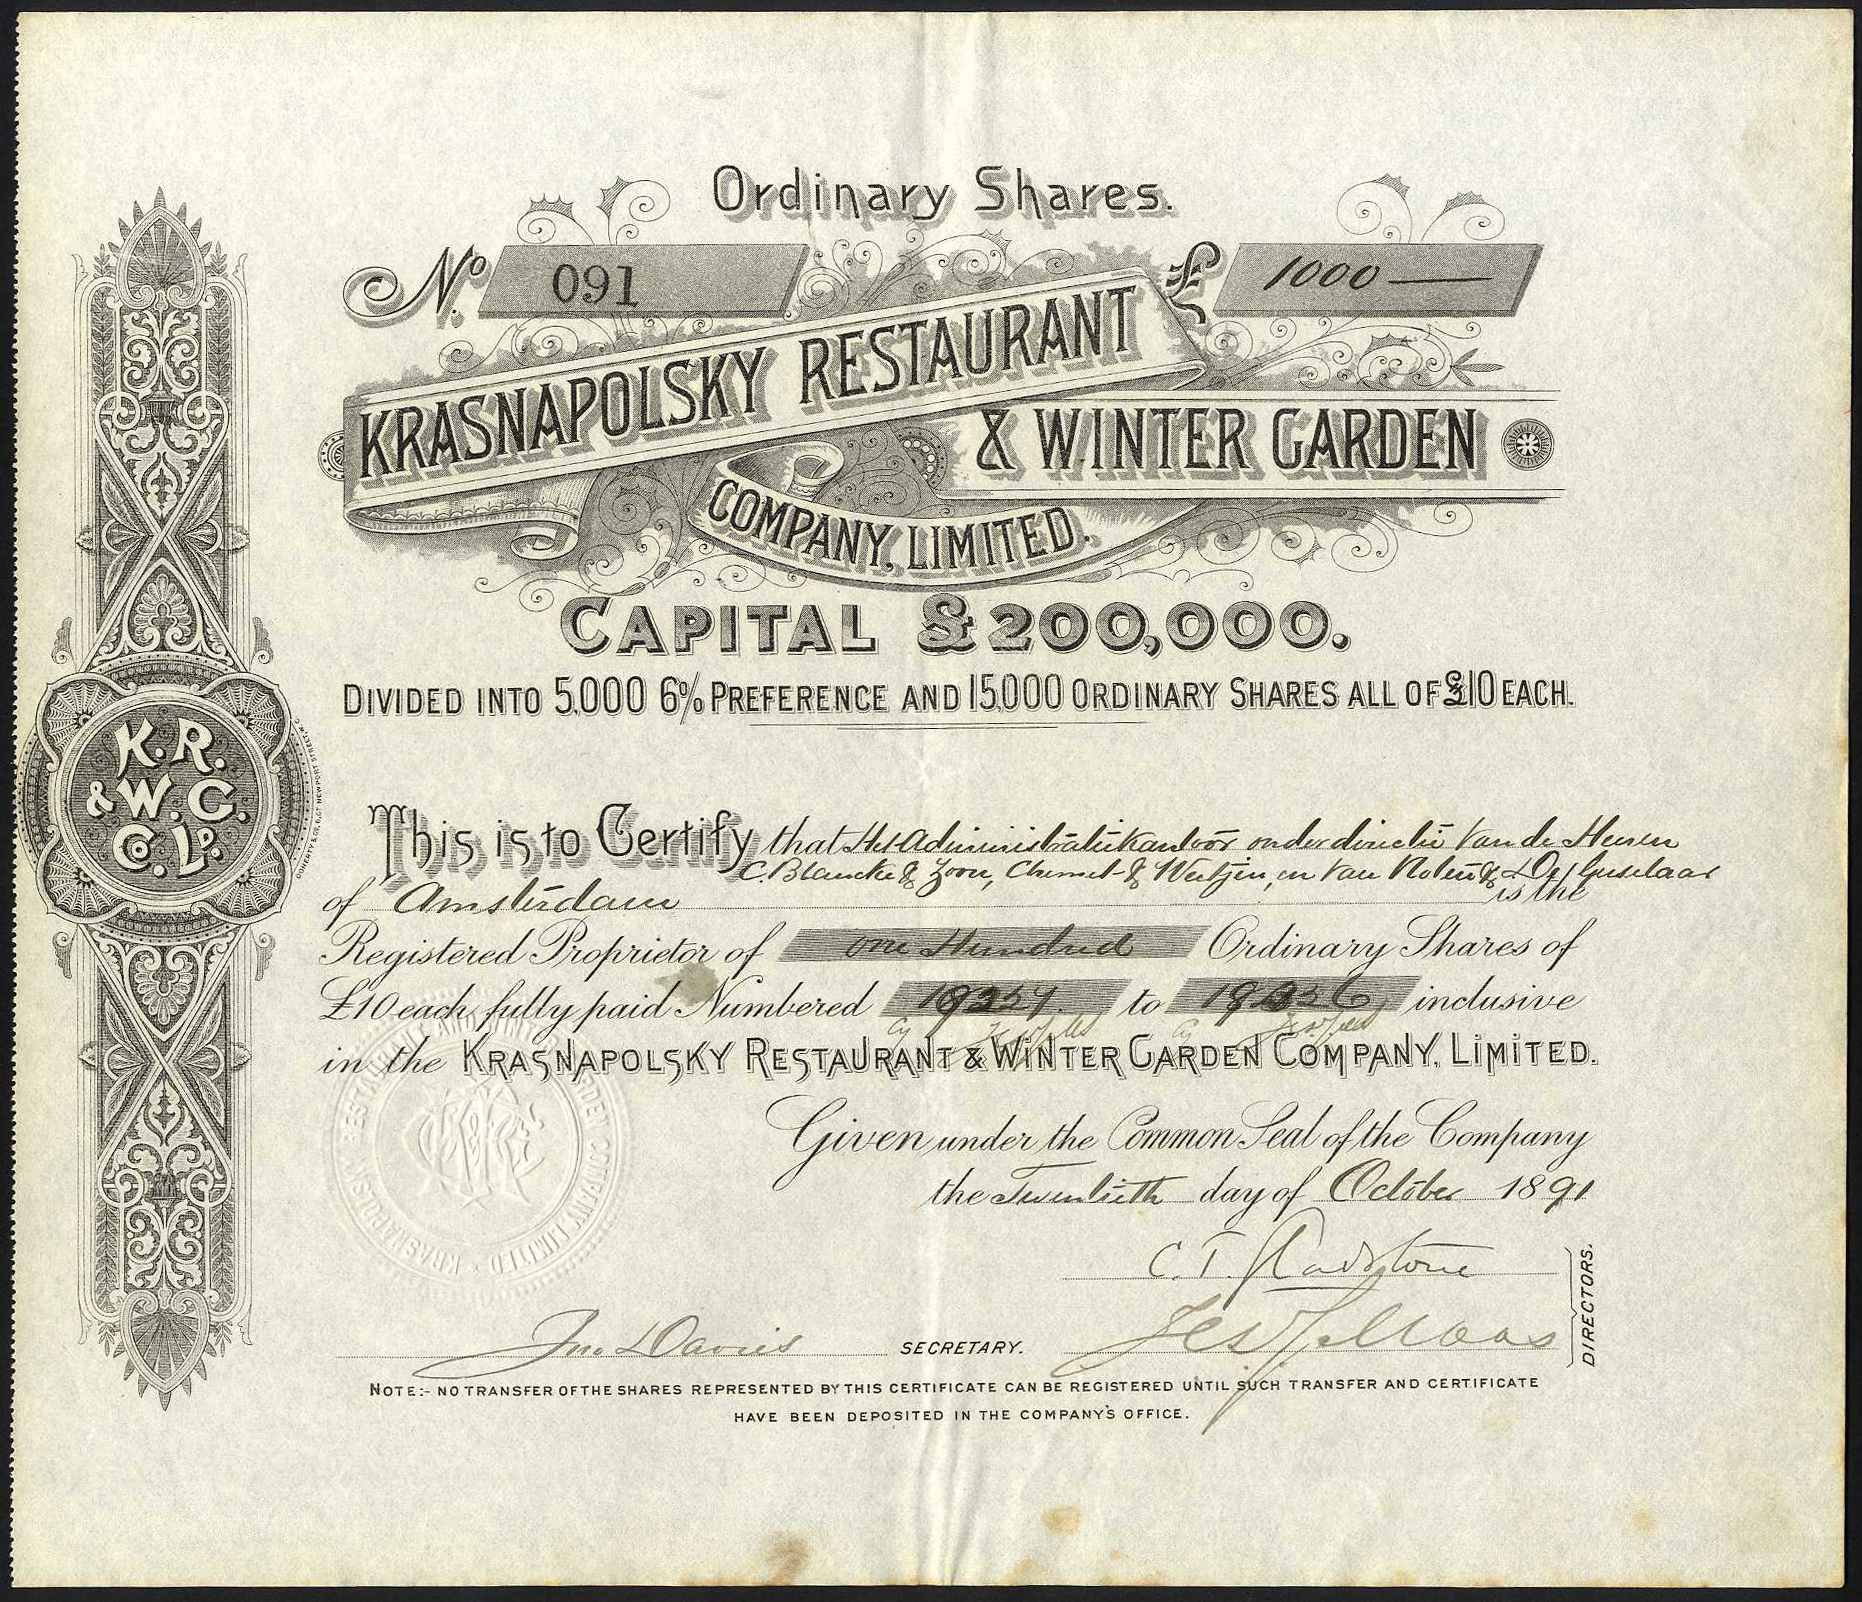 Ordinary Shares.
No. 091
£ 1000
KRASNAPOLSKY RESTAURANT
& WINTER GARDEN
COMPANY, LIMITED.
CAPITAL £200,000.
DIVIDED INTO 5,000 6% PREFERENCE AND 15,000 ORDINARY SHARES ALL OF £10 EACH.
K.R.
& W.G.
Co. Ld.
This is to Certify that Het Administratiekantoor onder directie van de Heeren
C. Blancke & Zoon, en van
of Amsterdam is the
Registered Proprietor of one Hundred Ordinary Shares of
£10 each fully paid Numbered to inclusive
in the KRASNAPOLSKY RESTAURANT & WINTER GARDEN COMPANY, LIMITED.
Given under the Common Seal of the Company
the Twentieth day of October 1891
C. T. Gladstone
DIRECTORS.
Jno Davies SECRETARY.
NOTE:- NO TRANSFER OF THE SHARES REPRESENTED BY THIS CERTIFICATE CAN BE REGISTERED UNTIL SUCH TRANSFER AND CERTIFICATE
HAVE BEEN DEPOSITED IN THE COMPANY'S OFFICE.